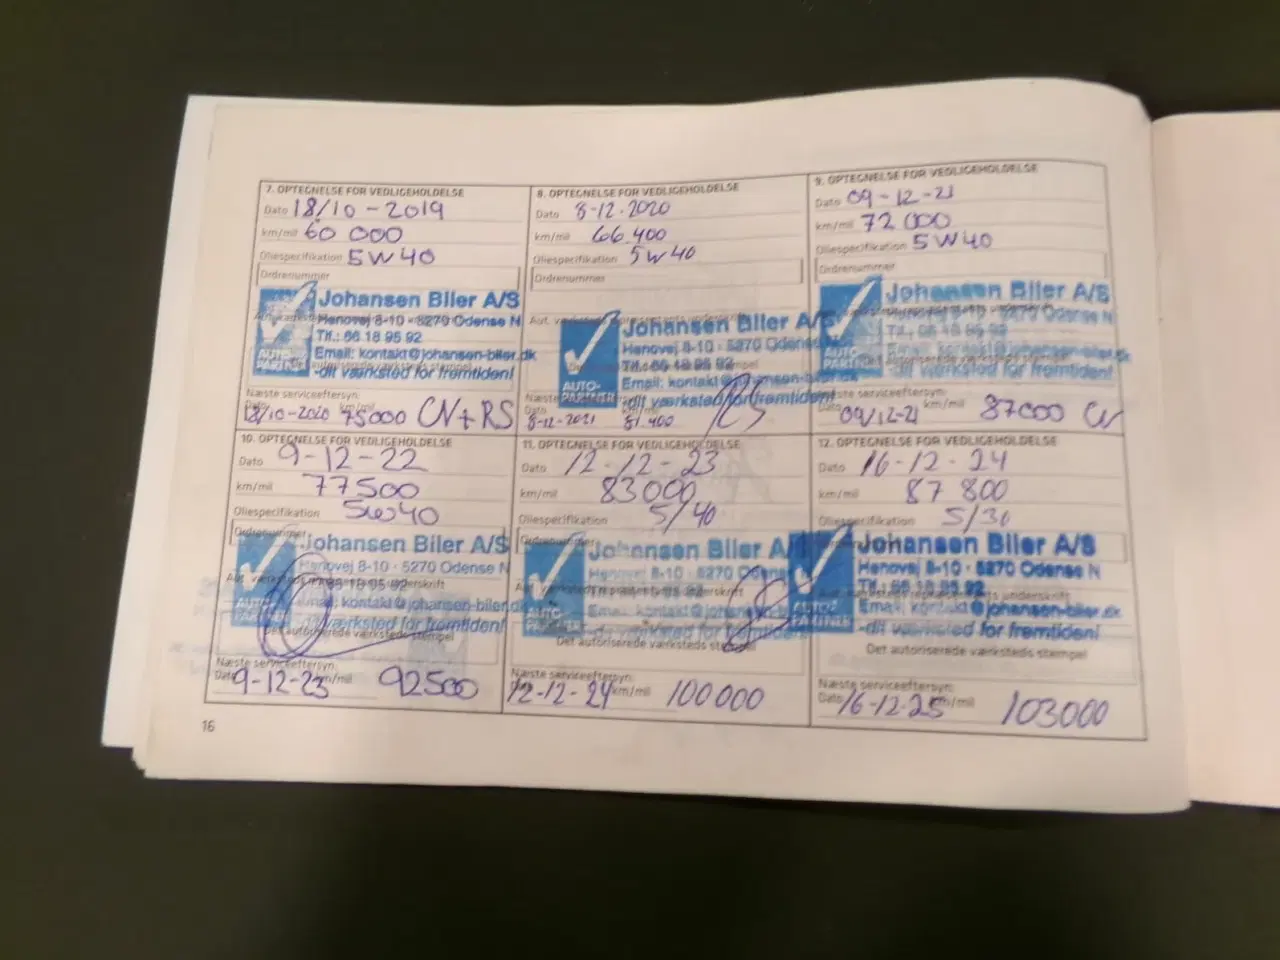 7. OPTEGNELSE FOR VEDLIGEHOLDELSE
Dato 18/10-2019
km/mil 60 000
Oliespecifikation 5W40
Ordrenummer
Johansen Biler A/S
Henovej 8-10 · 5270 Odense N
Tlf.: 66 18 95 92
Email: kontakt@johansen-biler.dk
-dit værksted for fremtiden!
AUTO-PARTNER
Næste serviceeftersyn:
Dato 18/10-2020 km/mil 75000 CN+RS
8. OPTEGNELSE FOR VEDLIGEHOLDELSE
Dato 8-12.2020
km/mil 66.400
Oliespecifikation 5W40
Ordrenummer
Johansen Biler A/S
Henovej 8-10 · 5270 Odense
Tlf.: 66 18 95 92
Email: kontakt@johansen-biler.dk
-dit værksted for fremtiden!
AUTO-PARTNER
Næste
8-12-2021 km/mil 81.400 RS
9. OPTEGNELSE FOR VEDLIGEHOLDELSE
Dato 09-12-21
km/mil 72 000
Oliespecifikation 5W40
Ordrenummer
Johansen Biler A/S
Henovej 8-10 · 5270 Odense
Tlf.: 66 18 95 92
Email: kontakt@johansen-biler.dk
-dit værksted for fremtiden!
AUTO-PARTNER
Næste serviceeftersyn:
Dato 09/12-21 km/mil 87000 CN
10. OPTEGNELSE FOR VEDLIGEHOLDELSE
Dato 9-12-22
km/mil 77500
Oliespecifikation 5W40
Ordrenummer
Johansen Biler A/S
Henovej 8-10 · 5270 Odense N
66 18 95 92
Email: kontakt@johansen-biler.dk
-dit værksted for fremtiden!
AUTO-PARTNER
Det autoriserede værksteds stempel
Næste serviceeftersyn:
Dato 9-12-23 km/mil 92500
11. OPTEGNELSE FOR VEDLIGEHOLDELSE
Dato 12-12-23
km/mil 83000
Oliespecifikation 5/40
Ordrenummer
Johansen Biler A/S
Henovej 8-10 · 5270 Odense
Email: kontakt@johansen-biler.dk
-dit værksted for fremtiden!
AUTO-PARTNER
Det autoriserede værksteds stempel
Næste serviceeftersyn:
12-12-24 km/mil 100000
12. OPTEGNELSE FOR VEDLIGEHOLDELSE
Dato 16-12-24
km/mil 87 800
Oliespecifikation 5/30
Johansen Biler A/S
Henovej 8-10 · 5270 Odense N
Tlf.: 66 18 95 92
Email: kontakt@johansen-biler.dk
-dit værksted for fremtiden!
AUTO-PARTNER
Det autoriserede værksteds stempel
Næste serviceeftersyn:
Dato 16-12-25 km/mil 103000
16